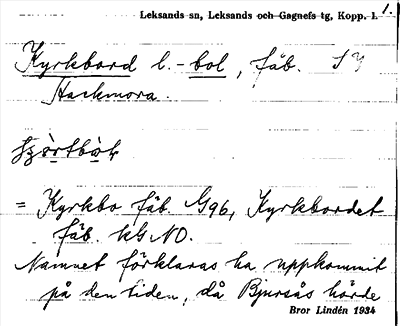 1.
Leksands sn, Leksands och Gagnefs tg, Kopp. l.
Kyrkbord l. -bol, fäb. SY
Hackmora.
= Kyrkbo fäb. G96, Kyrkbordet
fäb. kG NO.
Namnet förklaras ha uppkommit
på den tiden, då Bjursås hörde
Bror Lindén 1934